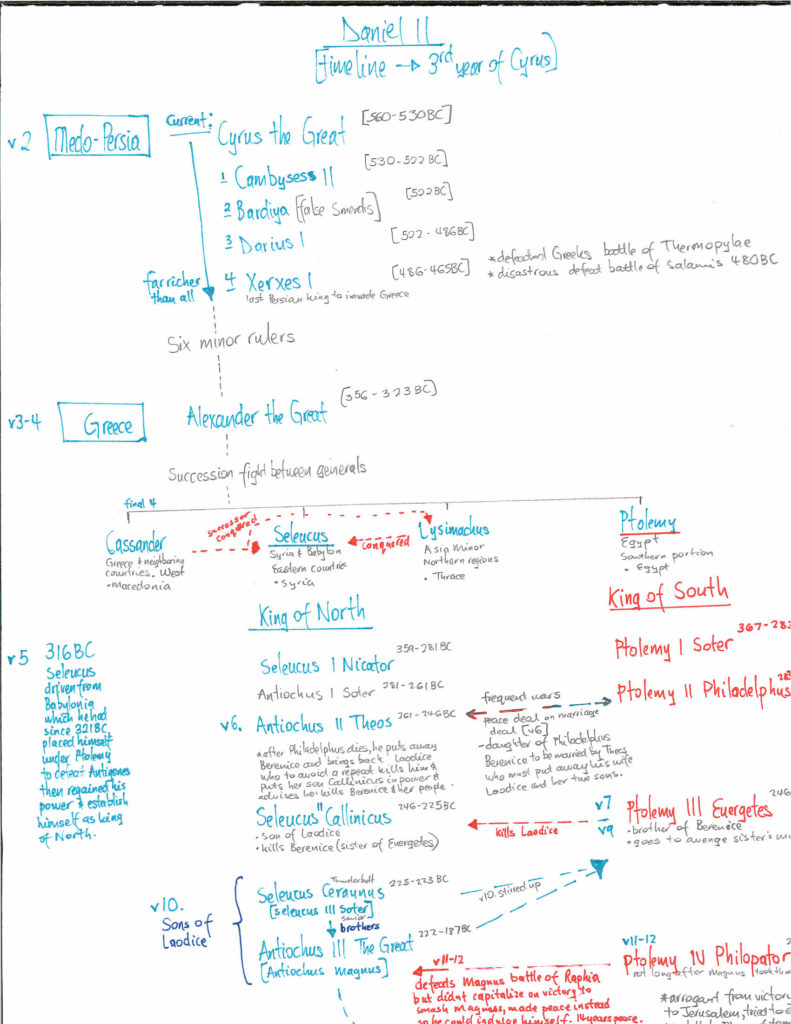 Daniel 11
[timeline → 3rd year of Cyrus]
v2
Medo-Persia
Current:
Cyrus the Great
[560-530BC]
1 Cambysess II
[530-522BC]
2 Bardiya [false Smerdis]
[522BC]
3 Darius I
[522-486BC]
4 Xerxes I
[486-465BC]
last Persian king to invade Greece
*defeated Greeks battle of Thermopylae
*disastrous defeat battle of Salamis 480BC
far richer
than all
Six minor rulers
v3-4
Greece
Alexander the Great
[356-323BC]
Succession fight between generals
final 4
Cassander
Greece & neighboring
countries. West
•Macedonia
successor
conquered
Seleucus
Syria & Babylon
Eastern countries
•Syria
conquered
Lysimachus
Asia Minor
Northern regions
• Thrace
Ptolemy
Egypt
Southern portion
• Egypt
King of North
King of South
v5
316BC
Seleucus
driven from
Babylonia
which he had
since 321BC
placed himself
under Ptolemy
to defeat Antigones
then regained his
power & establish
himself as king
of North.
Seleucus I Nicator
359-281BC
Antiochus I Soter
281-261BC
v6. Antiochus II Theos
261-246BC
*after Philadelphus dies, he puts away
Berenice and brings back Laodice
who to avoid a repeat kills him &
puts her son Callinicus in power &
advises he kills Berenice & her people.
367-283
Ptolemy I Soter
Ptolemy II Philadelphus
frequent wars
peace deal on marriage
deal [v6]
-daughter of Philadelphus
Berenice to be married by Theos
who must put away his wife
Laodice and her two sons.
Seleucus II Callinicus
246-225BC
•Son of Laodice
•kills Berenice (sister of Euergetes)
kills Laodice
v7
v9
Ptolemy III Euergetes
246
•brother of Berenice
•goes to avenge sister's
v10.
Sons of
Laodice
Thunderbolt
Seleucus Ceraunus
225-223BC
[Seleucus III Soter]
savior
brothers
v10. stirred up
Antiochus III The Great
222-187BC
[Antiochus Magnus]
v11-12
defeats Magnus battle of Raphia
but didnt capitalize on victory to
smash Magness, made peace instead
so he could indulge himself. 14 years peace.
v11-12
Ptolemy IV Philopator
not long after Magnus took
*arrogant from victory
to Jerusalem, tried to